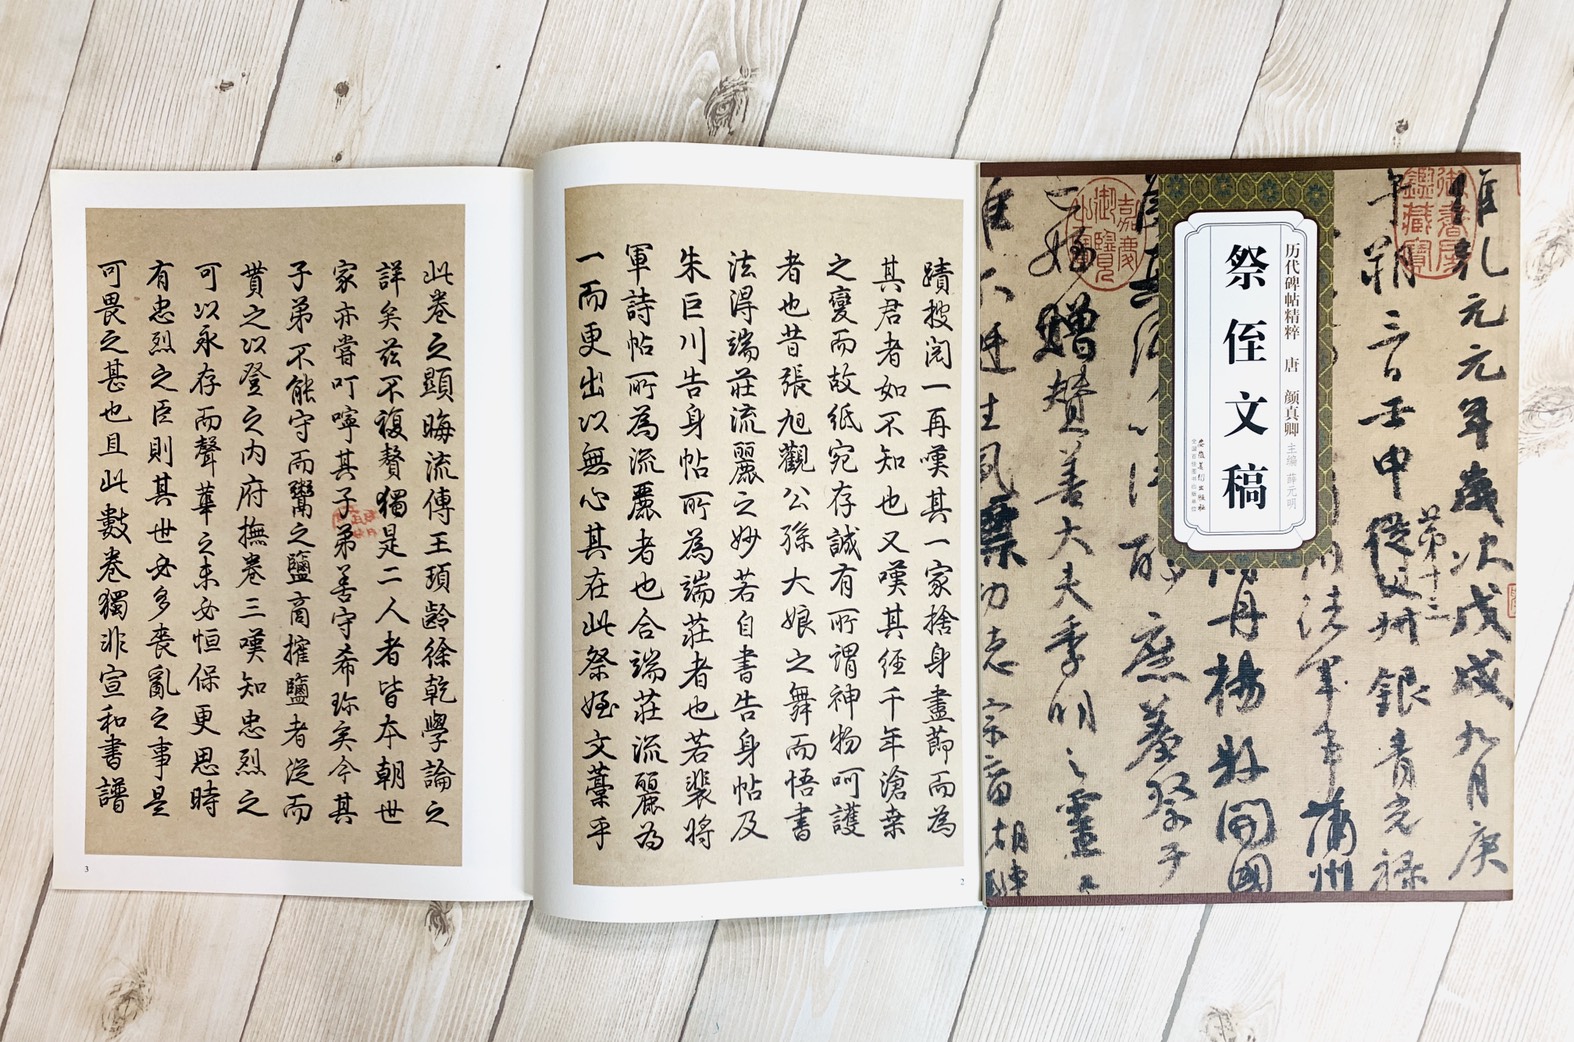 惟乾元元年歲次戊戌九月庚
午朔三日壬申第十三從父銀青光祿
諸軍事蒲州
丹楊縣開國
庶羞祭于
亡姪贈贊善大夫季明之靈曰
惟爾挺生夙標幼德宗廟瑚璉
嘉慶御覽之寶
历代碑帖精粹 唐 颜真卿 主编 薛元明
祭侄文稿
安徽美术出版社
蹟披閱一再嘆其一家捨身盡節而為
其君者如不知也又嘆其經千年滄桑
之變而故紙宛存誠有所謂神物呵護
者也昔張旭觀公孫大娘之舞而悟書
法淂端莊流麗之妙若自書告身帖及
朱巨川告身帖所為端莊者也若裴將
軍詩帖所為流麗者也合端莊流麗為
一而更出以無心其在此祭姪文藁乎
2
此卷之顯晦流傳王頊齡徐乾學論之
詳矣茲不複贅獨是二人者皆本朝世
家亦嘗叮嚀其子弟善守希珎矣今其
子弟不能守而鬻之鹽商搉鹽者從而
貰之以登之內府撫卷三嘆知忠烈之
可以永存而聲華之未必恒保更思時
有忠烈之臣則其世必多喪亂之事是
可畏之甚也且此數卷獨非宣和書譜
3